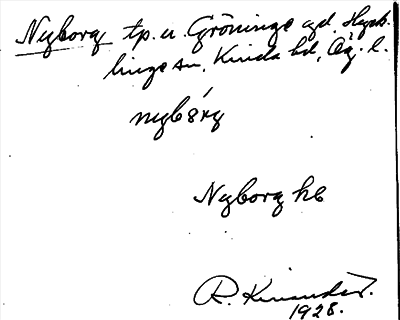 Nyborg tp. u. Gröninge gd. Hyck-
linge sn, Kinda hd, Ög. l.
nybǿrg
Nyborg hc
R. Kinander.
1928.